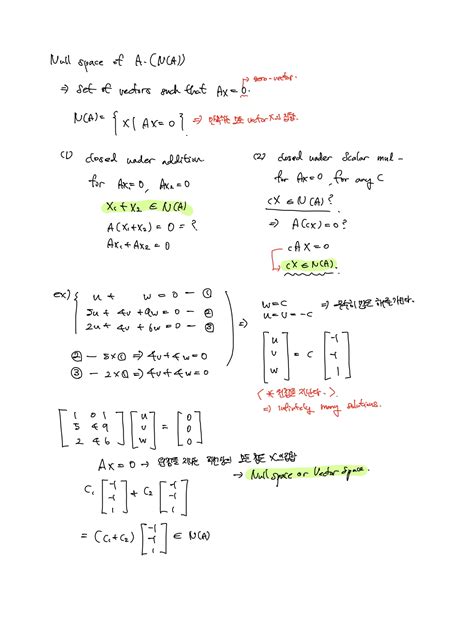 Null space of A. (N(A))
⇒ set of vectors such that AX = 0. → zero-vector.
N(A) = { X | AX = 0 } ⇒ 만족하는 모든 vector X의 집합
(1) closed under addition
for AX₁=0, AX₂=0
X₁ + X₂ ∈ N(A)
A(X₁+X₂) = 0 = ?
AX₁ + AX₂ = 0
(2) closed under scalar mul -
for AX=0, for any C
CX ∈ N(A)?
⇒ A(CX) = 0?
CAX = 0
CX ∈ N(A).
ex) { u + w = 0 — ①
5u + 4v + 9w = 0 — ②
2u + 4v + 6w = 0 — ③
② — 5×① ⇒ 4v + 4w = 0
③ — 2×① ⇒ 4v + 4w = 0
⇒ w = C
u = v = -C
⇒ 무수히 많은 해를 가진다.
[u v w] = C [-1 -1 1]
(* 원점을 지난다.)
⇒ infinitely many solutions.
[1 0 1
5 4 9
2 4 6] [u v w] = [0 0 0]
AX = 0 → 원점을 지나는 직선상의 모든 점들 X의 집합
→ Null space or Vector space.
C₁ [-1 -1 1] + C₂ [-1 -1 1]
= (C₁+C₂) [-1 -1 1] ∈ N(A)